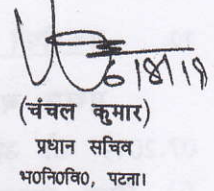 6/8/19
(चंचल कुमार)
प्रधान सचिव
भ०नि०वि०, पटना।